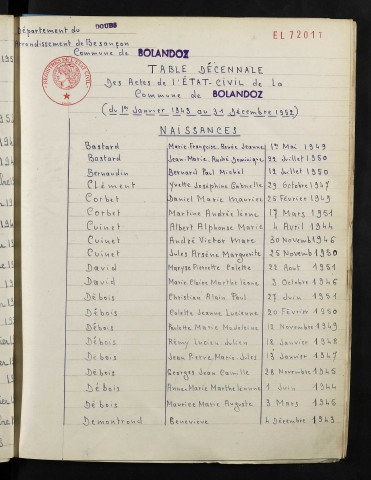 Département du DOUBS
EL 72011
Arrondissement de Besançon
Commune de BOLANDOZ
TABLE DÉCENNALE
Des Actes de l'ÉTAT-CIVIL de La
Commune de BOLANDOZ
(du 1er Janvier 1943 au 31 Décembre 1952)
NAISSANCES
Bastard Marie Françoise Renée Jeanne 1er Mai 1949
Bastard Jean-Marie André Dominique 22 Juillet 1950
Bernaudin Bernard Paul Michel 12 Juillet 1950
Clément Yvette Joséphine Gabrielle 29 Octobre 1947
Corbet Daniel Marie Maurice 25 Février 1949
Corbet Martine Andrée 17 Mars 1951
Cuinet Albert Alphonse Marie 4 Avril 1944
Cuinet André Victor Marc 30 Novemb 1946
Cuinet Jules Arsène Marguerite 25 Novemb 1950
David Maryse Pierrette Colette 22 Août 1951
David Marie Claire Marthe 3 Octobre 1946
Débois Christian Alain Paul 27 Juin 1951
Débois Colette Jeanne Lucienne 20 Février 1950
Débois Paulette Marie Madeleine 12 Novembre 1949
Débois Rémy Lucien Julien 18 Janvier 1948
Débois Jean Pierre Marie Jules 13 Janvier 1947
Débois Georges Jean Camille 28 Novembre 1945
Débois Anne-Marie Marthe 1 Juin 1944
Débois Maurice Marie Auguste 3 Mars 1945
Demontrond Geneviève 4 Décembre 1943